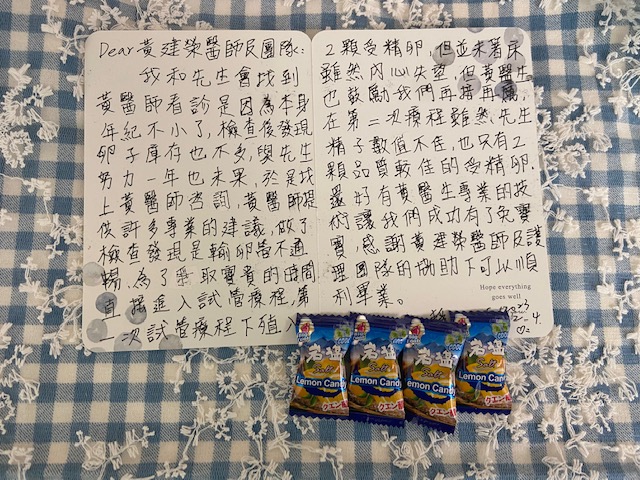 Dear 黃建榮醫師及團隊:
我和先生會找到
黃醫師看診是因為本身
年紀不小了,檢查後發現
卵子庫存也不多,與先生
努力一年也未果,於是找
上黃醫師咨詢,黃醫師提
供許多專業的建議,做了
檢查發現是輸卵管不通
暢,為了爭取寶貴的時間
直接進入試管療程,第
一次試管療程下殖入
2顆受精卵,但並未著床
雖然內心失望,但黃醫生
也鼓勵我們再接再厲,
在第二次療程雖然先生
精子數值不佳,也只有2
顆品質較佳的受精卵.
還好有黃醫生專業的技
術讓我們成功有了兔寶
寶,感謝黃建榮醫師及護
理團隊的協助下可以順
利畢業。
Hope everything
goes well
岩塩
Salt
Lemon Candy
クエン酸
岩塩
Salt
Lemon Candy
クエン酸
岩塩
Salt
Lemon Candy
クエン酸
岩塩
Salt
Lemon Candy
クエン酸